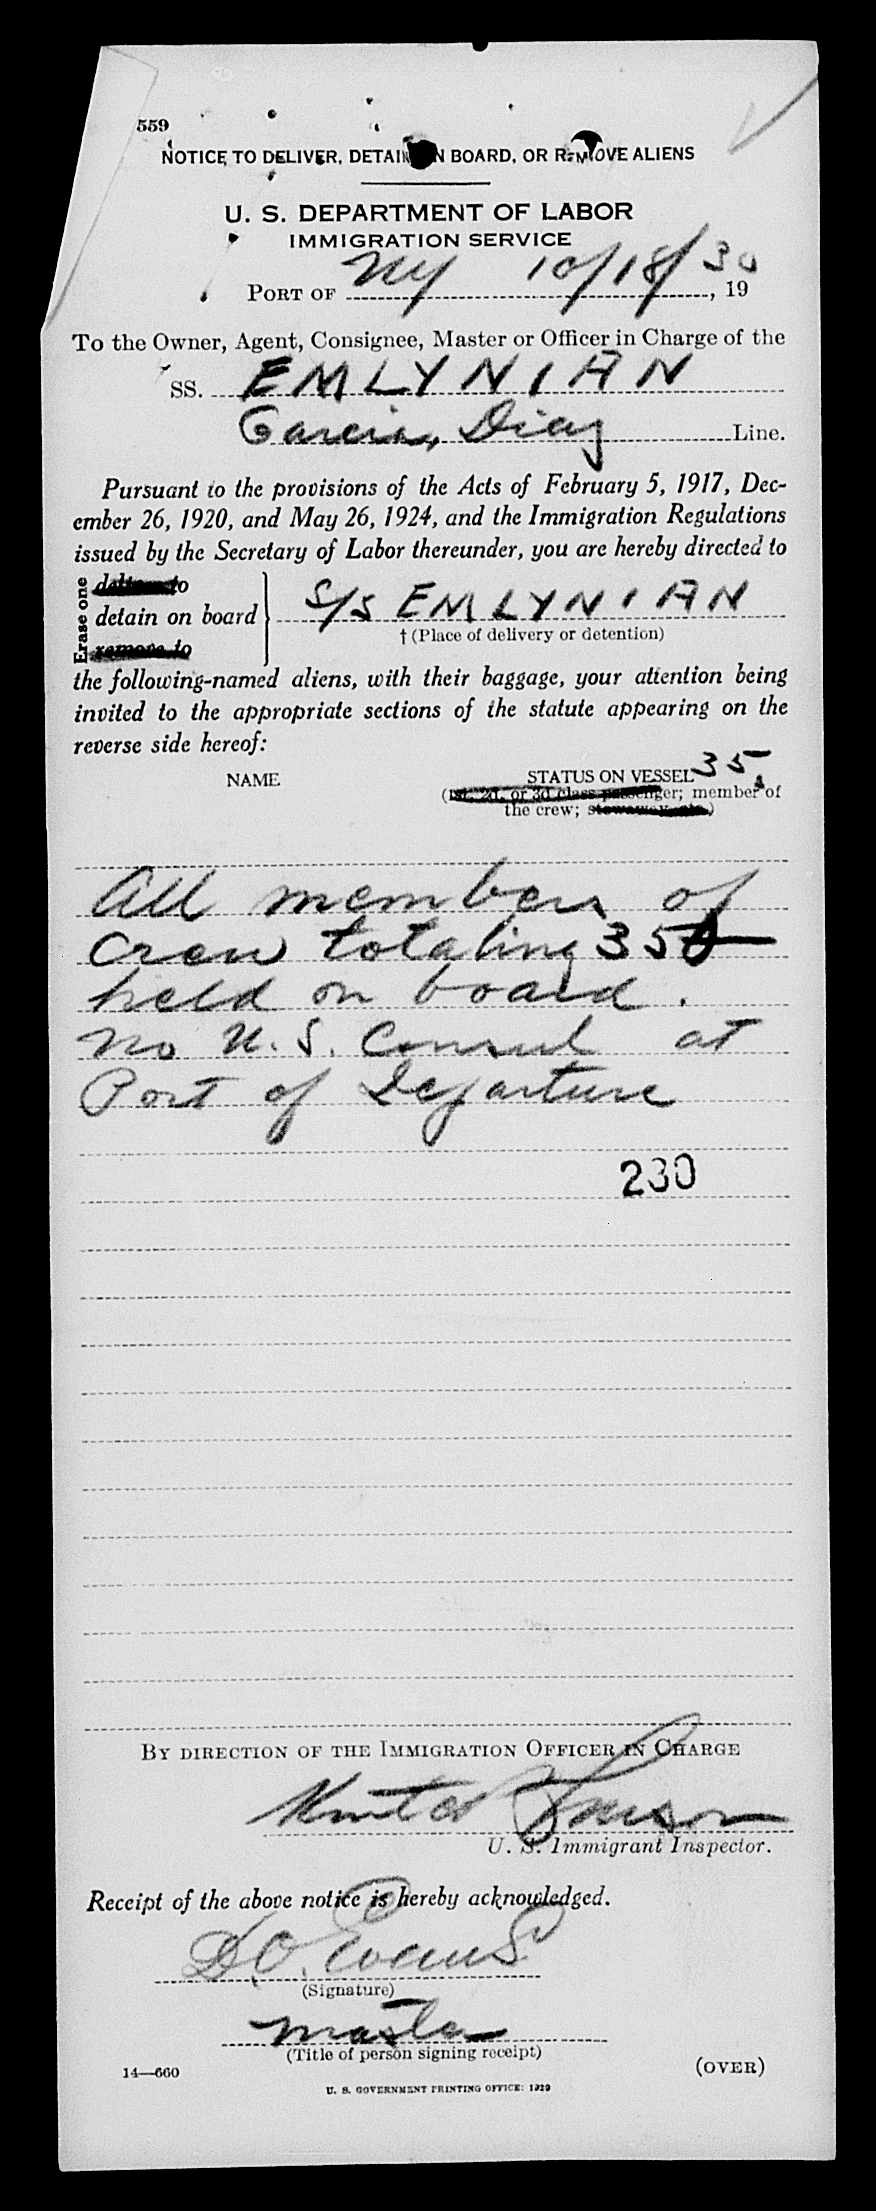 559
NOTICE TO DELIVER, DETAIN ON BOARD, OR REMOVE ALIENS
U. S. DEPARTMENT OF LABOR
IMMIGRATION SERVICE
PORT OF NY 10/18/30, 19
To the Owner, Agent, Consignee, Master or Officer in Charge of the
SS. EMLYNIAN
Garcia, Diaz Line.
Pursuant to the provisions of the Acts of February 5, 1917, Dec-
ember 26, 1920, and May 26, 1924, and the Immigration Regulations
issued by the Secretary of Labor thereunder, you are hereby directed to
Erase one
deliver to
detain on board S/S EMLYNIAN
† (Place of delivery or detention)
remove to
the following-named aliens, with their baggage, your attention being
invited to the appropriate sections of the statute appearing on the
reverse side hereof:
NAME STATUS ON VESSEL 35
(1st, 2d, or 3d class passenger; member of
the crew; stowaway, etc.)
All members of
Crew totaling 35
held on board.
No U. S. Consul at
Port of Departure
230
BY DIRECTION OF THE IMMIGRATION OFFICER IN CHARGE
U. S. Immigrant Inspector.
Receipt of the above notice is hereby acknowledged.
D.O. Evans
(Signature)
Master
(Title of person signing receipt)
14—660 (OVER)
U. S. GOVERNMENT PRINTING OFFICE: 1929